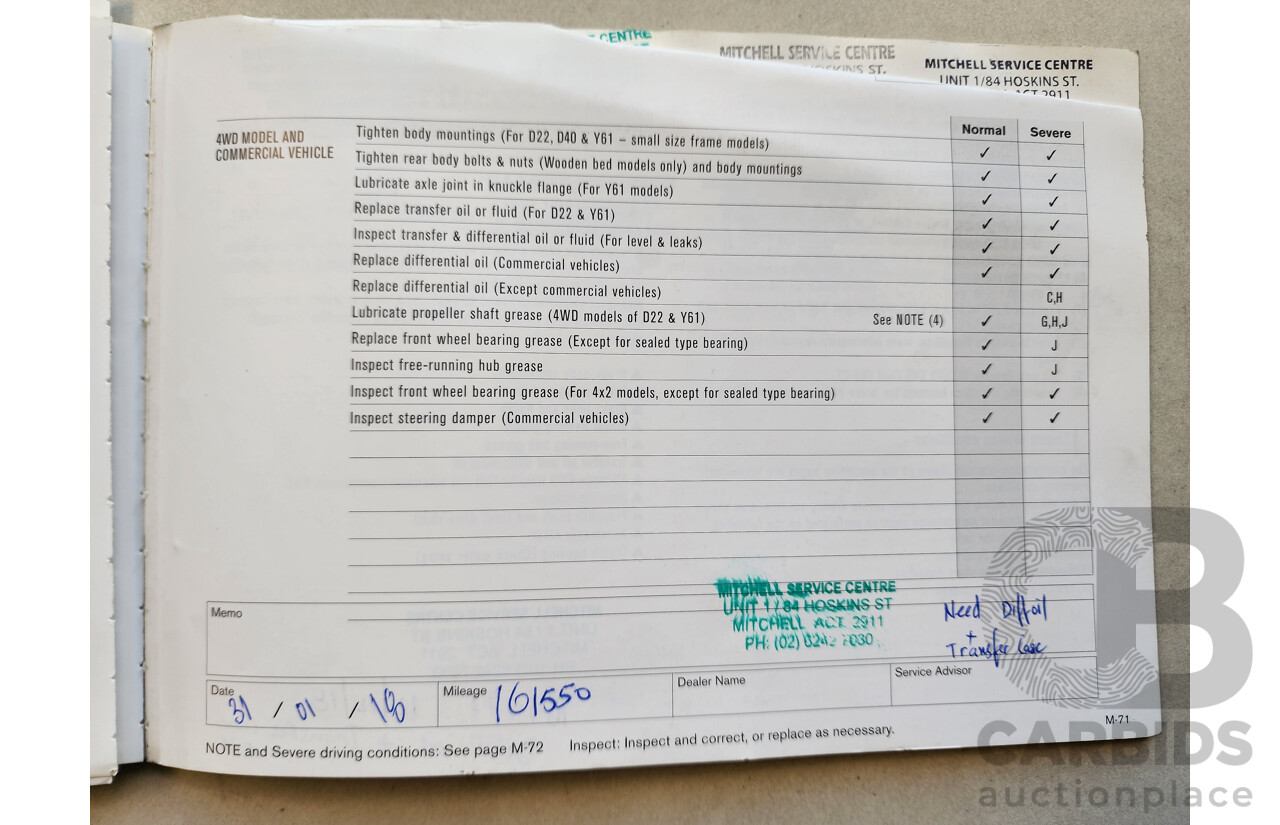 CENTRE
MITCHELL SERVICE CENTRE
HOSKINS ST.
MITCHELL SERVICE CENTRE
UNIT 1/84 HOSKINS ST.
ACT 2911
4WD MODEL AND
COMMERCIAL VEHICLE
Normal Severe
Tighten body mountings (For D22, D40 & Y61 – small size frame models) ✓ ✓
Tighten rear body bolts & nuts (Wooden bed models only) and body mountings ✓ ✓
Lubricate axle joint in knuckle flange (For Y61 models) ✓ ✓
Replace transfer oil or fluid (For D22 & Y61) ✓ ✓
Inspect transfer & differential oil or fluid (For level & leaks) ✓ ✓
Replace differential oil (Commercial vehicles) ✓ ✓
Replace differential oil (Except commercial vehicles) C,H
Lubricate propeller shaft grease (4WD models of D22 & Y61) See NOTE (4) ✓ G,H,J
Replace front wheel bearing grease (Except for sealed type bearing) ✓ J
Inspect free-running hub grease ✓ J
Inspect front wheel bearing grease (For 4x2 models, except for sealed type bearing) ✓ ✓
Inspect steering damper (Commercial vehicles) ✓ ✓
Memo
MITCHELL SERVICE CENTRE
UNIT 1/84 HOSKINS ST
MITCHELL ACT 2911
PH: (02)
Need Diff oil
+
Transfer Case
Date 31 / 01 / 18
Mileage 161550
Dealer Name
Service Advisor
NOTE and Severe driving conditions: See page M-72 Inspect: Inspect and correct, or replace as necessary.
M-71
CARBIDS
auctionplace